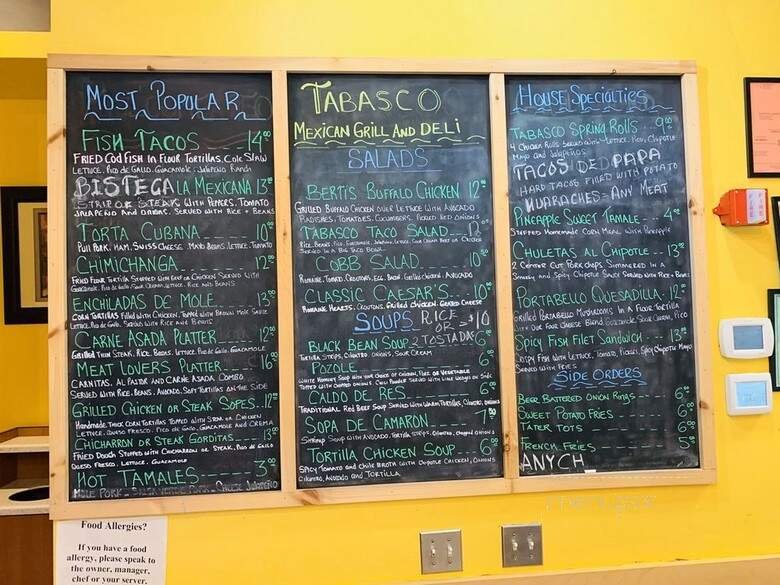 MOST POPULAR
FISH TACOS 14
FRIED COD FISH IN FLOUR TORTILLAS, COLE SLAW
LETTUCE, PICO DE GALLO, GUACAMOLE, JALAPEÑO RANCH
BISTEC A LA MEXICANA 13
STRIP OF STEAKS WITH PEPPERS, TOMATO
JALAPEÑO AND ONIONS. SERVED WITH RICE + BEANS
TORTA CUBANA 10
PULL PORK, HAM, SWISS CHEESE, MAYO, BEANS, LETTUCE, TOMATO
CHIMICHANGA 12
FRIED FLOUR TORTILLA STUFFED WITH BEEF OR CHICKEN SERVED WITH
GUACAMOLE, PICO DE GALLO, SOUR CREAM, LETTUCE, RICE AND BEANS
ENCHILADAS DE MOLE 13
CORN TORTILLAS FILLED WITH CHICKEN, TOPPED WITH BROWN MOLE SAUCE
LETTUCE, PICO DE GALLO. SERVED WITH RICE AND BEANS
CARNE ASADA PLATTER 12
GRILLED THIN STEAK, RICE, BEANS, LETTUCE, PICO DE GALLO, GUACAMOLE
MEAT LOVERS PLATTER 16
CARNITAS, AL PASTOR AND CARNE ASADA COMBO
SERVED WITH RICE, BEANS, AVOCADO, SOFT TORTILLAS ON THE SIDE
GRILLED CHICKEN OR STEAK SOPES 12
HANDMADE THICK CORN TORTILLAS TOPPED WITH STEAK OR CHICKEN
LETTUCE, QUESO FRESCO, PICO DE GALLO, GUACAMOLE AND CREMA
CHICHARRON OR STEAK GORDITAS 13
FRIED DOUGH STUFFED WITH CHICHARRON OR STEAK, PICO DE GALLO
QUESO FRESCO, LETTUCE, GUACAMOLE
HOT TAMALES 3
MOLE PORK - CHEESE JALAPEÑO
TABASCO
MEXICAN GRILL AND DELI
SALADS
BERTIS BUFFALO CHICKEN 12
GRILLED BUFFALO CHICKEN OVER LETTUCE WITH AVOCADO
RADISHES, TOMATOES, CUCUMBERS, PICKLED RED ONIONS
TABASCO TACO SALAD 12
SERVED IN A BIG TACO BOWL
COBB SALAD 10
ROMAINE, TOMATO, CROUTONS, EGG, BACON, GRILLED CHICKEN, AVOCADO
CLASSIC CAESAR'S 10
ROMAINE HEARTS, CROUTONS, GRILLED CHICKEN, GRATED CHEESE
SOUPS RICE OR = $10
BLACK BEAN SOUP 2 TOSTADAS 6
TORTILLA STRIPS, CILANTRO, ONIONS, SOUR CREAM
POZOLE 6
WHITE HOMINY SOUP WITH YOUR CHOICE OF CHICKEN, PORK OR VEGETABLE
TOPPED WITH CHOPPED ONIONS, CHILI POWDER SERVED WITH LIME WEDGE ON SIDE
CALDO DE RES 6
TRADITIONAL RED BEEF SOUP SERVED WITH WARM TORTILLAS, CILANTRO, ONIONS
SOPA DE CAMARON 7
SHRIMP SOUP WITH AVOCADO, TORTILLA STRIPS, CILANTRO, CHOPPED ONIONS
TORTILLA CHICKEN SOUP 6
SPICY TOMATO AND CHILE BROTH WITH CHIPOTLE CHICKEN, ONIONS
CILANTRO, AVOCADO AND TORTILLA
HOUSE SPECIALTIES
TABASCO SPRING ROLLS 9
4 CHICKEN ROLLS SERVED WITH LETTUCE, PICO, CHIPOTLE
MAYO AND JALAPEÑOS
TACOS DE PAPA
HARD TACOS FILLED WITH POTATO
HUARACHES = ANY MEAT
PINEAPPLE SWEET TAMALE 4
STUFFED HOMEMADE CORN MEAL WITH PINEAPPLE
CHULETAS AL CHIPOTLE 13
2 CENTER CUT PORK CHOPS SIMMERED IN A
SMOKEY AND SPICY CHIPOTLE SAUCE SERVED WITH RICE + BEANS
PORTABELLO QUESADILLA 12
GRILLED PORTABELLO MUSHROOMS IN A FLOUR TORTILLA
WITH OUR FOUR CHEESE BLEND, GUACAMOLE, SOUR CREAM, PICO
SPICY FISH FILET SANDWICH 13
CRISPY FISH WITH LETTUCE, TOMATO, PICKLES, SPICY CHIPOTLE MAYO
SERVED WITH FRIES
SIDE ORDERS
BEER BATTERED ONION RINGS 6
SWEET POTATO FRIES 6
TATER TOTS 6
FRENCH FRIES 5
ANYCH
FIRE
Food Allergies?
If you have a food
allergy, please speak to
the owner, manager,
chef or your server.